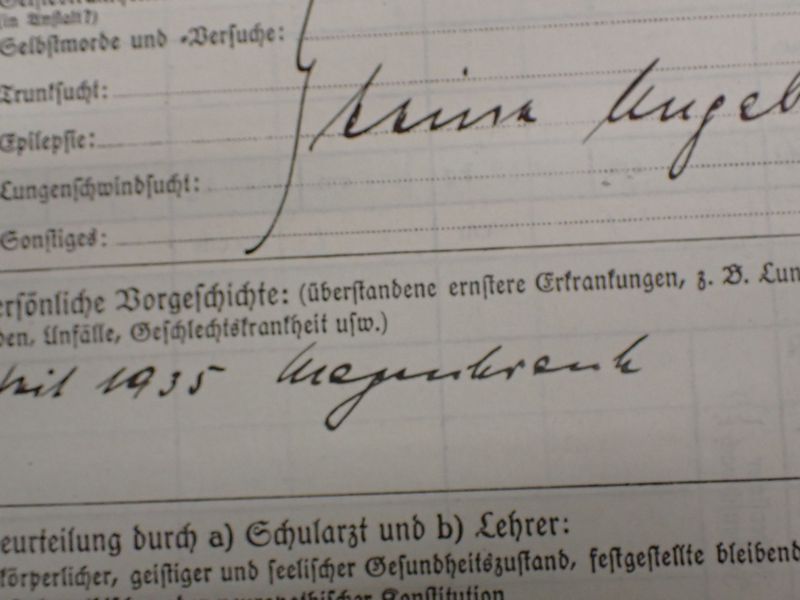 (in Anstalt?)
Selbstmorde und -Versuche:
Trunksucht:
keine Angeb
Epilepsie:
Lungenschwindsucht:
Sonstiges:
ersönliche Vorgeschichte: (überstandene ernstere Erkrankungen, z. B. Lun
den, Unfälle, Geschlechtskrankheit usw.)
seit 1935 Magenkrank
eurteilung durch a) Schularzt und b) Lehrer:
körperlicher, geistiger und seelischer Gesundheitszustand, festgestellte bleibend
Konstitution